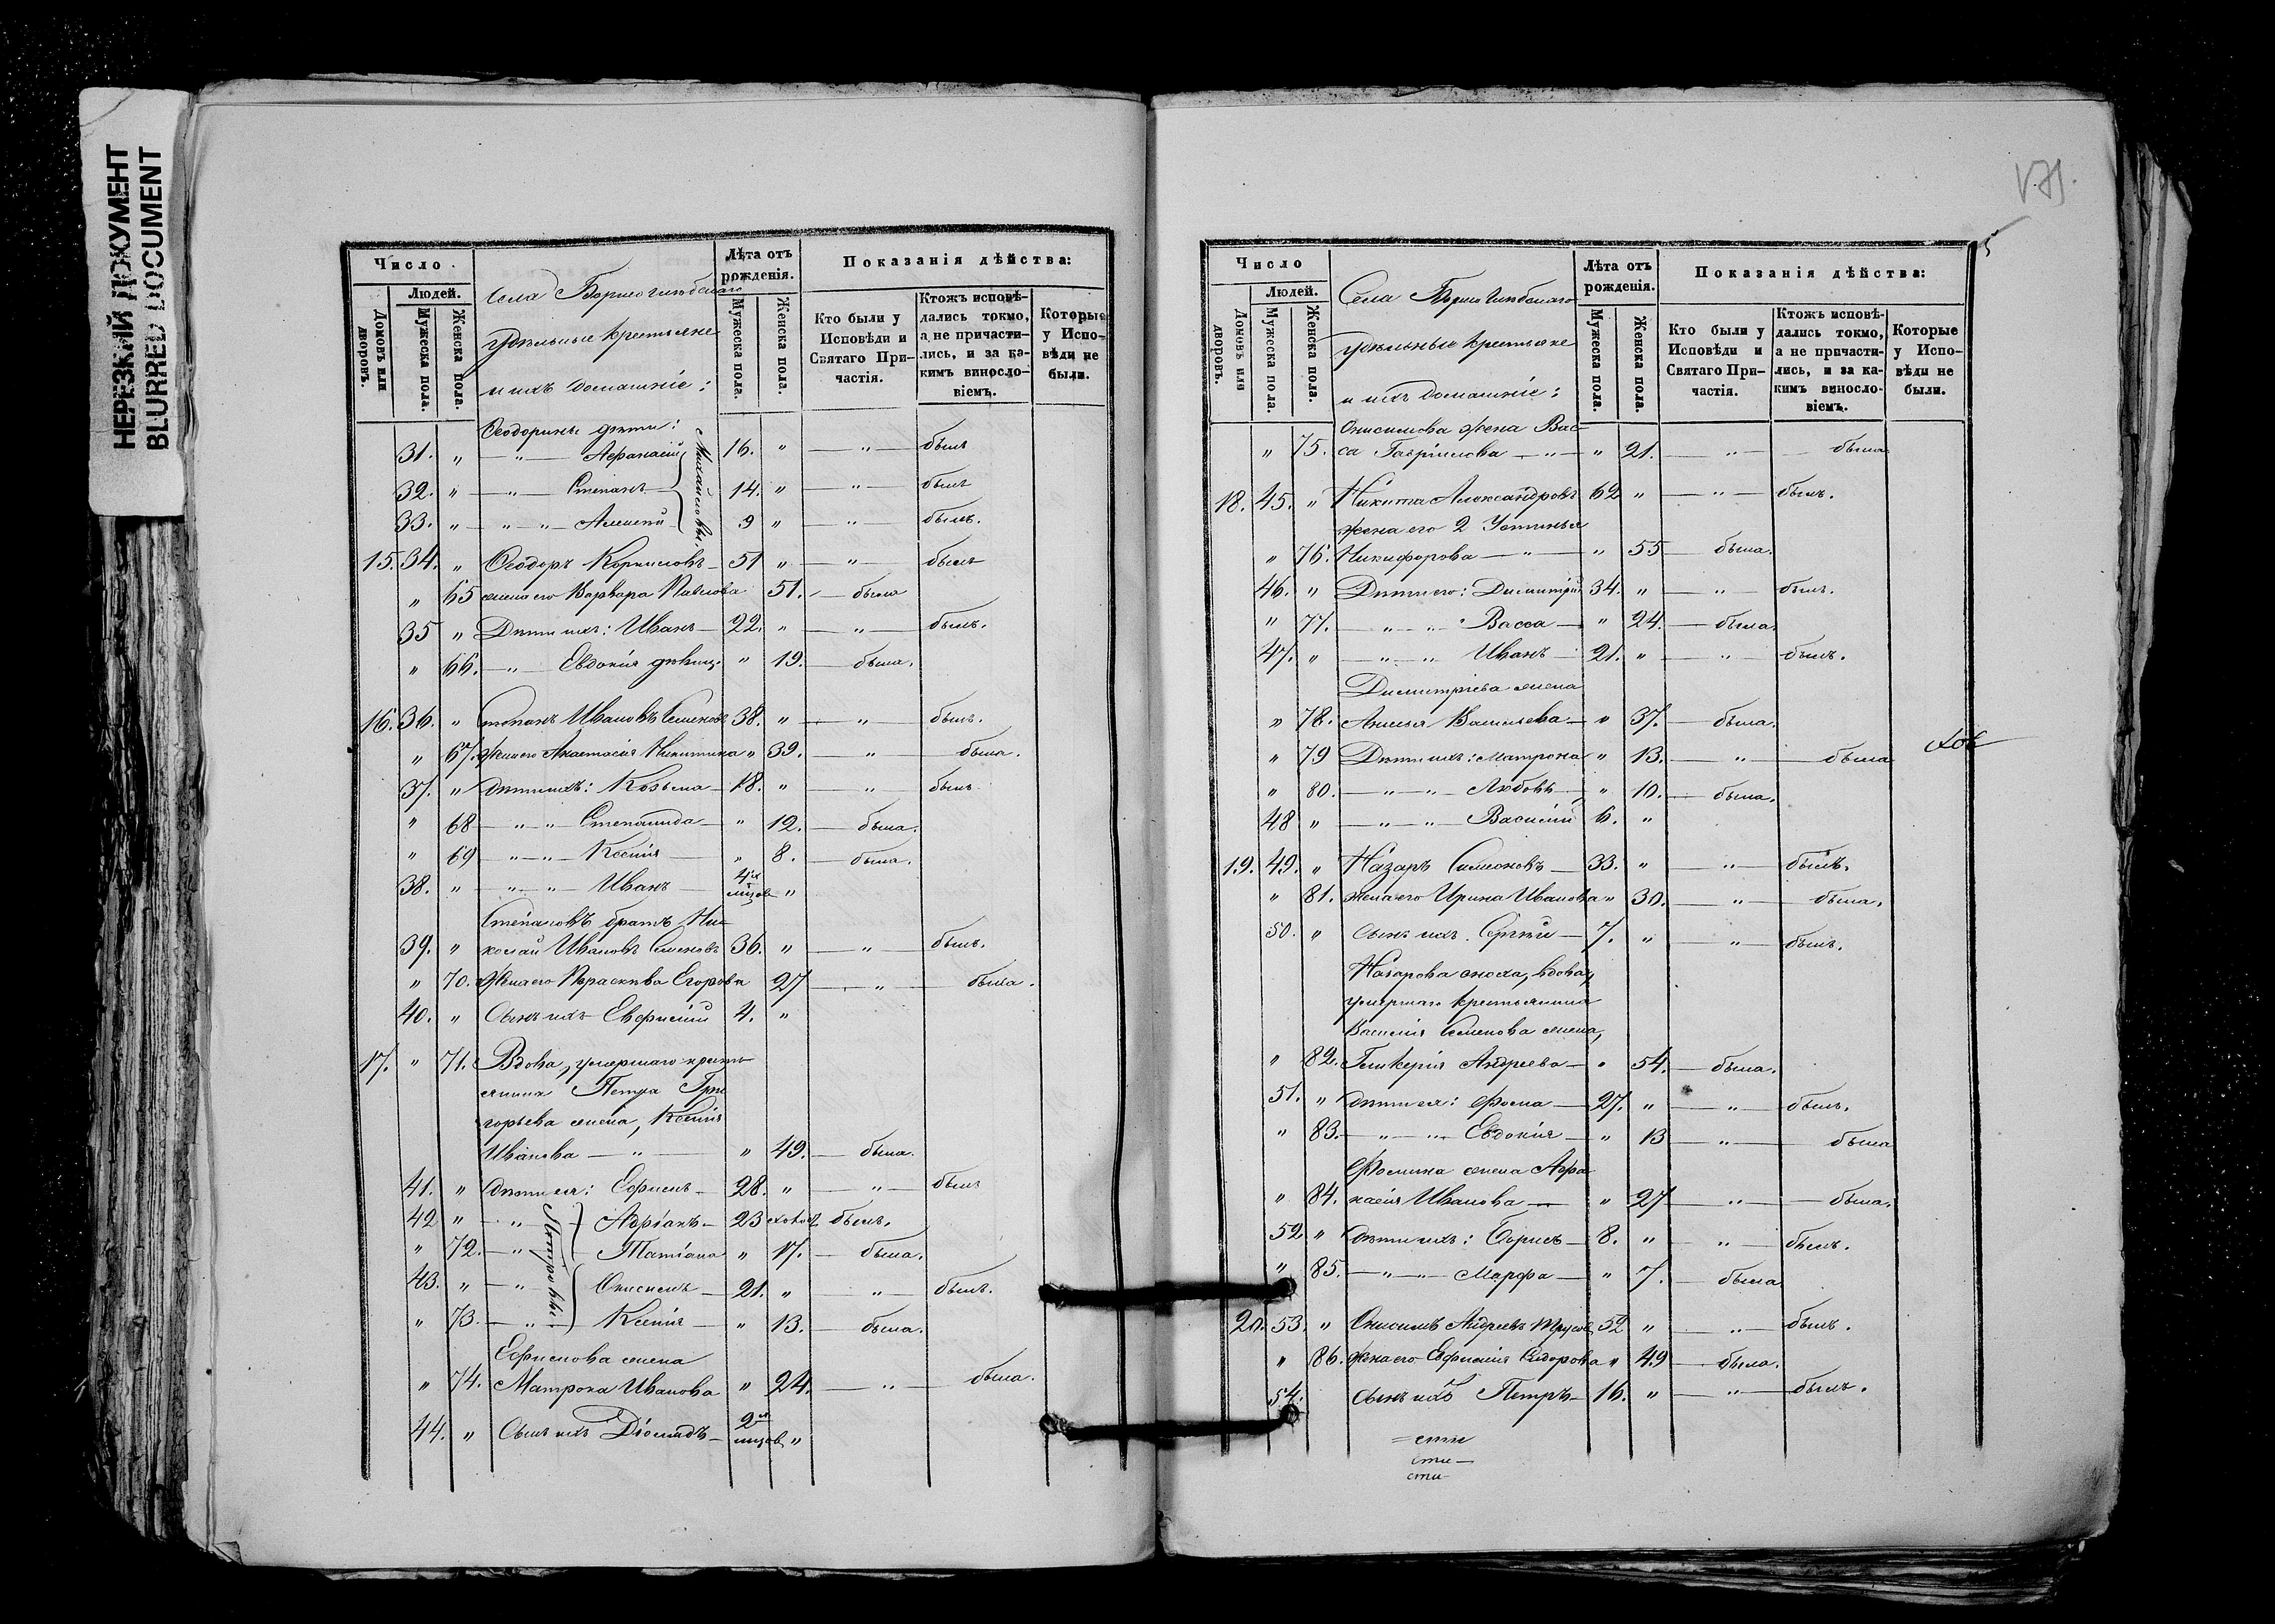 НЕРЕЗКИЙ ДОКУМЕНТ
BLURRED DOCUMENT
Число
Людей.
Домовъ или дворовъ.
Мужеска пола.
Женска пола.
Села Борисоглѣбскаго
удѣльные крестьяне
и ихъ домашніе:
Лѣта отъ рожденія.
Мужеска пола.
Женска пола.
Показанія дѣйства:
Кто были у Исповѣди и Святаго Причастія.
Ктожъ исповѣдались токмо, а не причастились, и за какимъ винословіемъ.
Которые у Исповѣди не были.
Ѳеодорины дѣти:
31. „ — „ — Аѳанасий 16. „ — „ — былъ
32. „ — „ — Степанъ 14. „ — „ — былъ
33. „ „ „ Алексѣй 9 „ — „ — былъ.
Михайловы.
15. 34. „ Ѳеодоръ Корниловъ 51 „ — „ — былъ
„ 65 жена его Варвара Павлова 51. — была
35 „ Дѣти ихъ: Иванъ 22. „ — „ — былъ.
„ 66. „ Евдокія дѣвиц. „ 19. — была.
16. 36. „ Степанъ Ивановъ Семеновъ 38. „ — „ — былъ.
„ 67. Жена его Анастасія Никитина „ 39. — „ — была.
37. „ Дѣти ихъ: Козьма 18. „ — „ — былъ
„ 68 — „ — „ — Степанида — „ 12. — была.
„ 69 — „ — „ — Ксенія — „ 8. — была.
38. „ — „ — „ — Иванъ — 4хъ мѣцов „
Степановъ братъ Ни-
39. „ колай Ивановъ Семеновъ 36. „ — „ — былъ.
„ 70. Жена его Параскева Егорова 27 — „ — была.
40. „ Сынъ ихъ Евѳимій 4. „
17. „ 71. Вдова, умершаго кресть-
янина Петра Гри
горьева жена, Ксенія
Иванова — „ — „ 49. — была.
41. „ Дѣти ея: Ефимъ 28. „ — „ — былъ
42 „ — „ — Адріанъ 23 холост былъ.
„ 72. — „ — Татіана „ 17. — была.
43. „ — „ — Онисимъ — 21. „ — „ — былъ.
„ 73. — „ — Ксенія — „ 13. — была.
Петровы
Ефимова жена
„ 74. Матрона Иванова „ 24. — „ — была.
44. „ Сынъ ихъ Діомидъ 2хъ мѣцов „
5
Число
Людей.
Домовъ или дворовъ.
Мужеска пола.
Женска пола.
Села Борисоглѣбскаго
удѣльные крестьяне
и ихъ домашніе:
Лѣта отъ рожденія.
Мужеска пола.
Женска пола.
Показанія дѣйства:
Кто были у Исповѣди и Святаго Причастія.
Ктожъ исповѣдались токмо, а не причастились, и за какимъ винословіемъ.
Которые у Исповѣди не были.
Онисимова жена Вас-
„ 75. са Гаврилова — „ — „ 21. — „ — была
18. 45. „ Никита Александровъ 62 „ — „ — былъ.
жена его 2 Устинья
„ 76. Никифорова — „ — „ 55 — была.
46. „ Дѣти его: Димитрій 34. „ — „ — былъ.
„ 77. — „ — „ Васса — „ 24. — была.
47. „ — „ — „ Иванъ 21. „ — „ — былъ.
Димитріева жена
„ 78. Анисья Васильева — „ 37. — была.
„ 79 Дѣти ихъ: Матрона „ 13. — „ — была
„ 80. — „ — „ — Любовь „ 10. — была.
48 „ — „ — „ — Василій 6. „
19. 49. „ Назаръ Симеоновъ 33. „ — „ — былъ.
„ 81. жена его Ирина Иванова „ 30. — „ — была.
50. „ Сынъ ихъ. Сергѣй — 7. „ — „ — былъ.
Назарова сноха, вдова,
умершаго крестьянина
Василія Семенова жена,
„ 82. Гликерія Андреева — „ 54. — была.
51. „ Дѣти ея: Фома — 27. „ — „ — былъ.
„ 83. — „ — „ — Евдокія — „ 13 — „ — была
Фомина жена Аѳа
„ 84. насія Иванова — „ 27 — „ — была.
52. „ Дѣти ихъ: Борисъ — 8. „ — „ — былъ.
„ 85. — „ — „ — Марфа — „ 7. — была
20. 53. „ Онисимъ Андреевъ 52 „ — „ — былъ.
„ 86. жена его Евфимія Сидорова „ 49 — была.
54. Сынъ ихъ Петръ — 16. „ — „ — былъ.